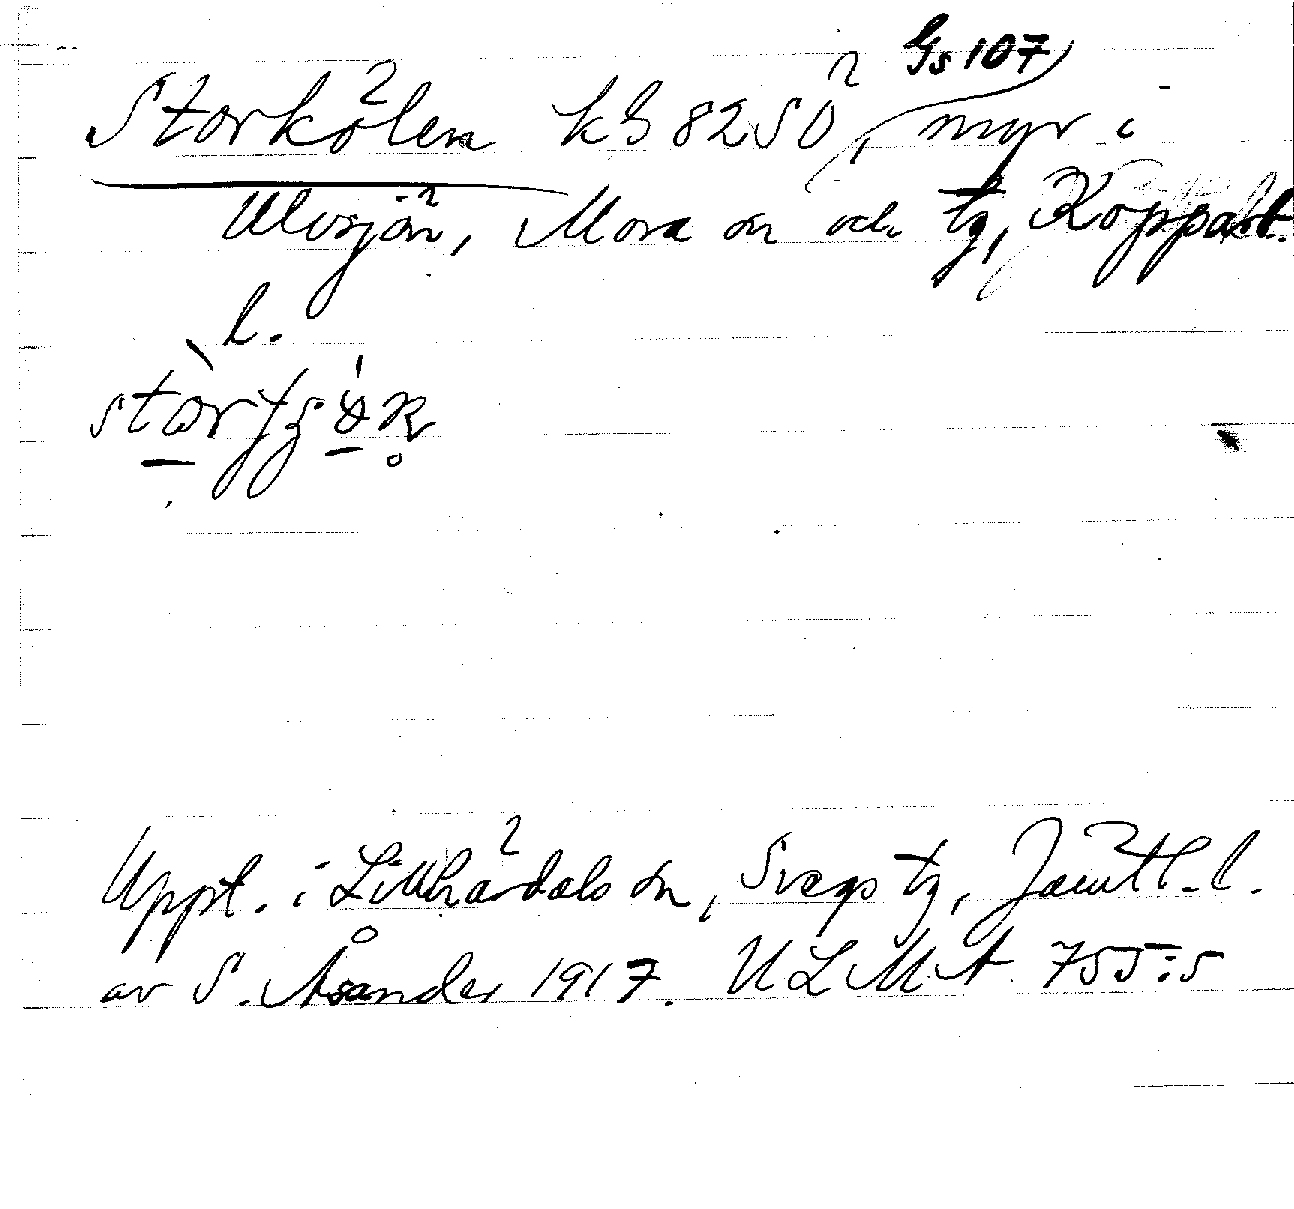 Gs 107
Storkölen kb 8250, myr i
Ulvsjön, Mora sn och tg, Kopparb.
l.
Uppt. i Lillhärdals sn, Svegs tg, Jämtl. l.
av S. Åsander 1917. ULMA 755:5